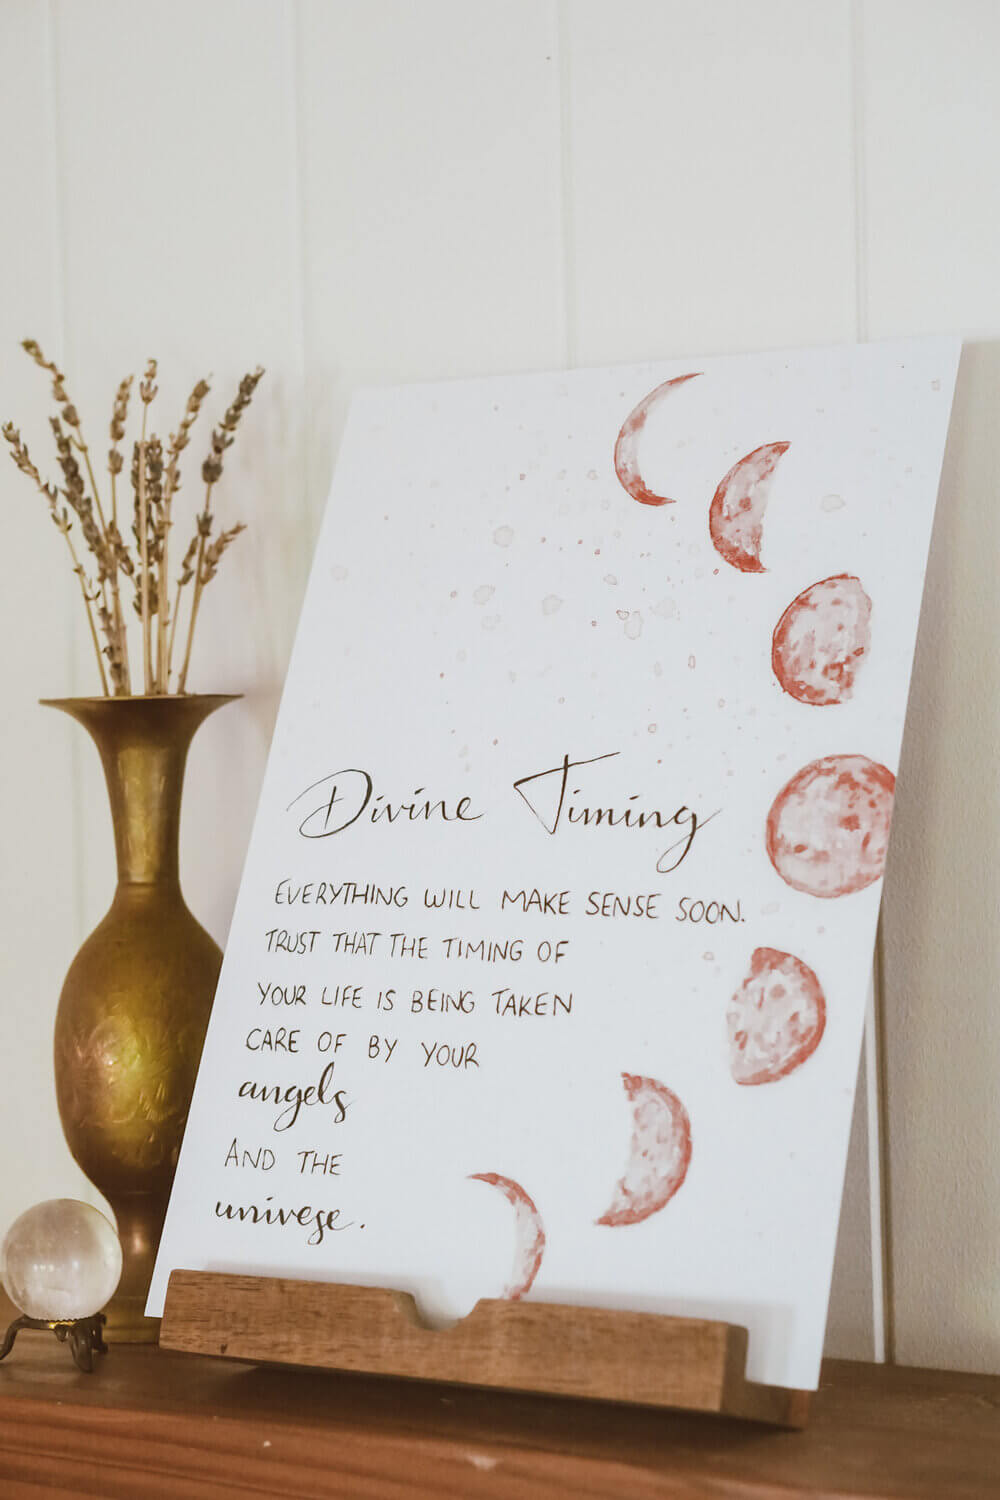 Divine Timing
EVERYTHING WILL MAKE SENSE SOON.
TRUST THAT THE TIMING OF
YOUR LIFE IS BEING TAKEN
CARE OF BY YOUR
angels
AND THE
univese.